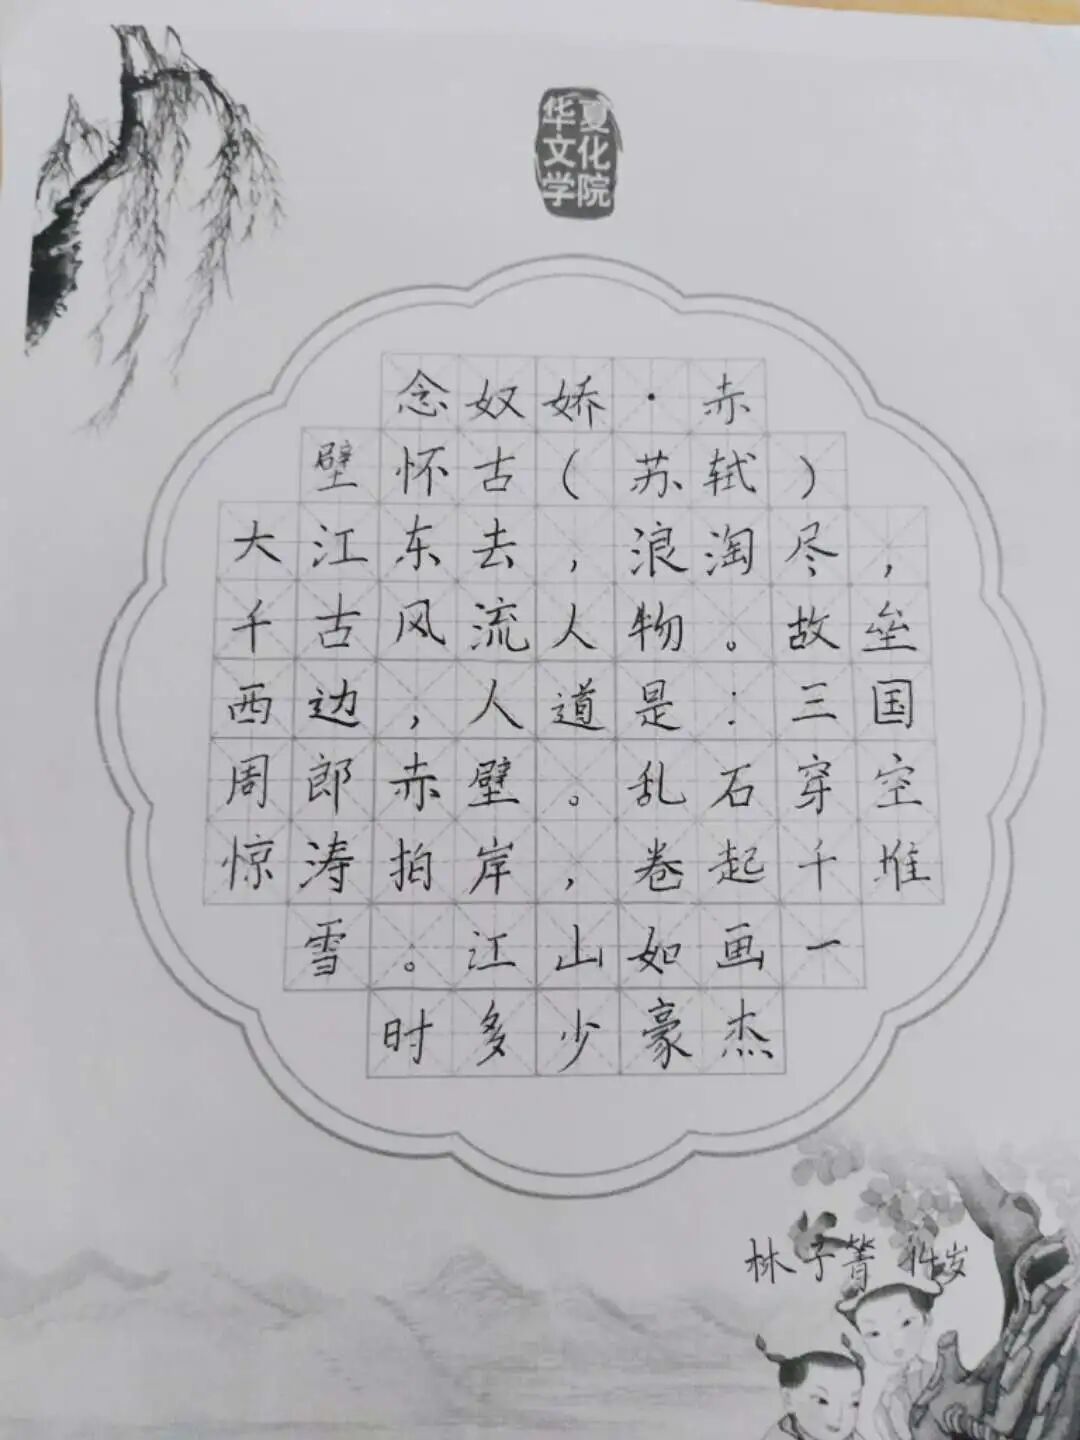 华夏
文化
学院
念奴娇·赤
壁怀古(苏轼)
大江东去,浪淘尽,
千古风流人物。故垒
西边,人道是:三国
周郎赤壁。乱石穿空
惊涛拍岸,卷起千堆
雪。江山如画一
时多少豪杰
林子箐 14岁